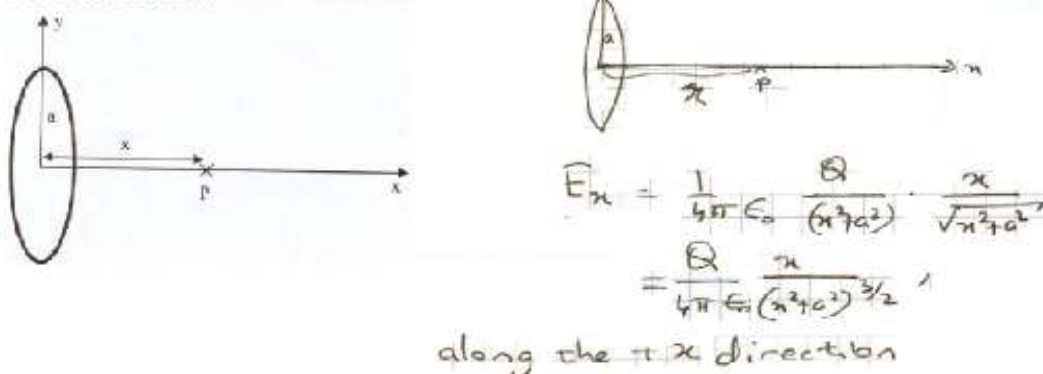 y
a
x
p
x
a
x
p
x
E_x = 1/(4π ε₀) Q/(x²+a²) · x/√(x²+a²)
= Q/(4π ε₀) x/(x²+a²)^{3/2} ,
along the +x direction